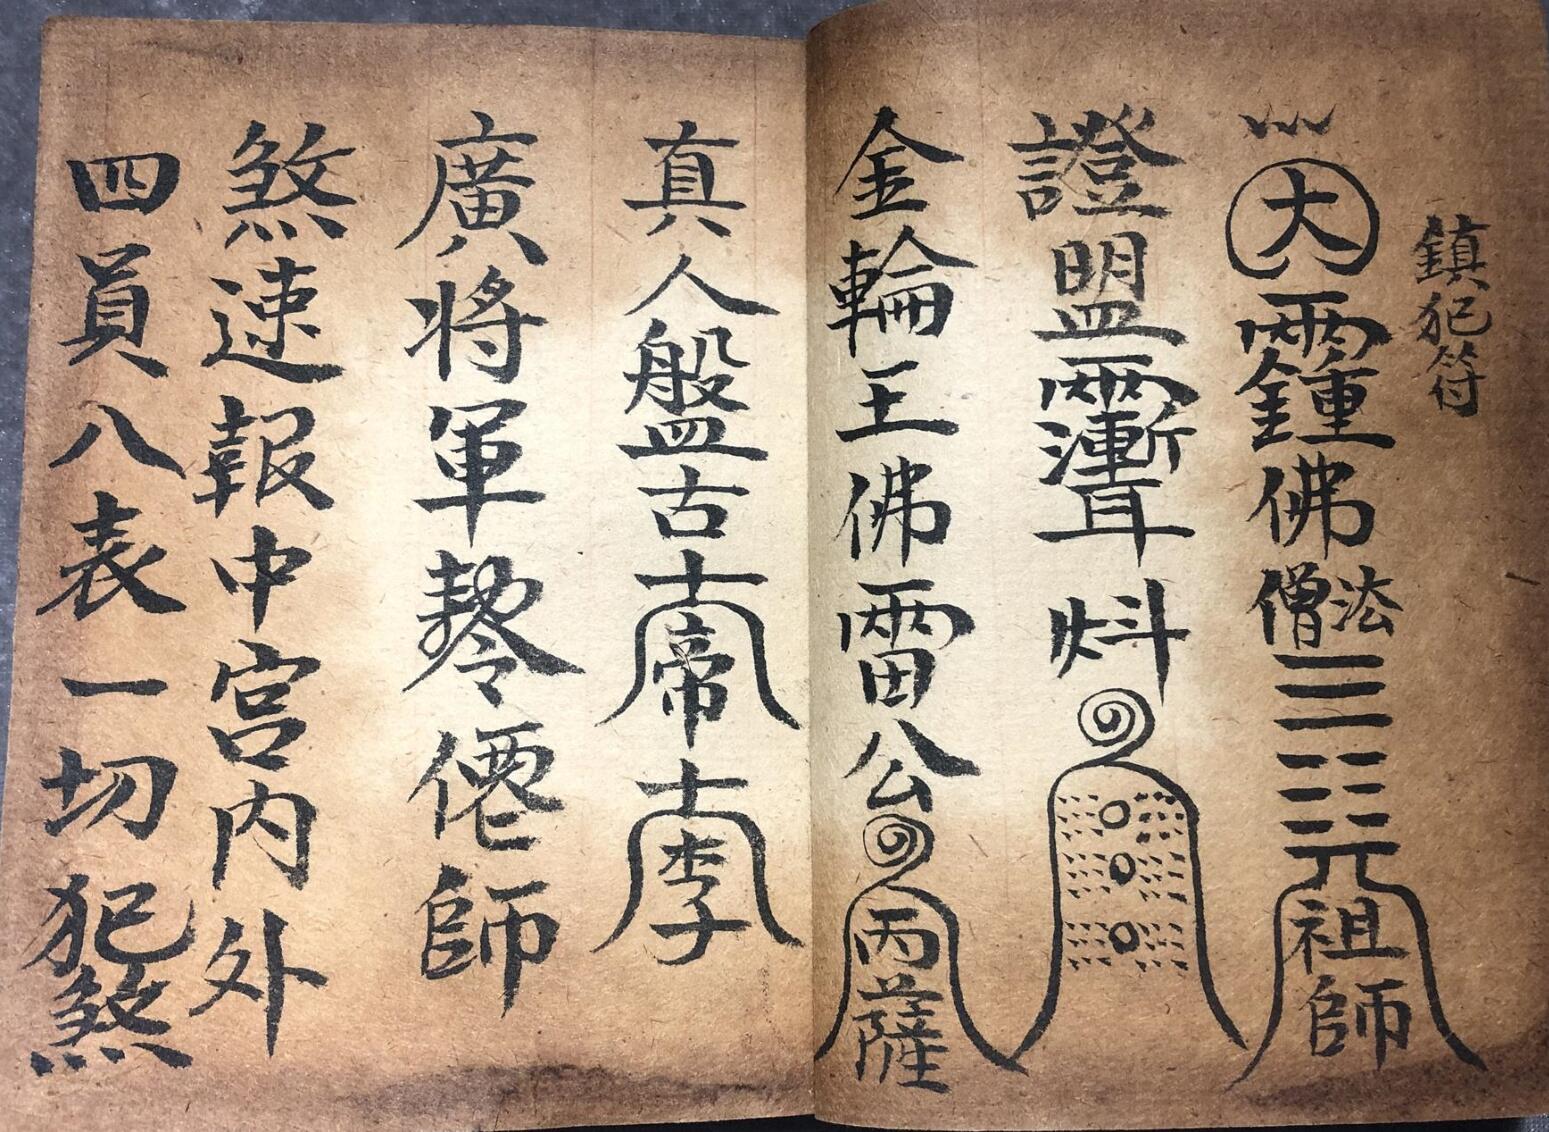 鎮犯符
大 佛法僧 三 元 祖師
證盟
金輪王佛雷公 丙薩
真人盤古帝李
廣將軍 僊師
煞速報中宮內外
四員八表一切犯煞